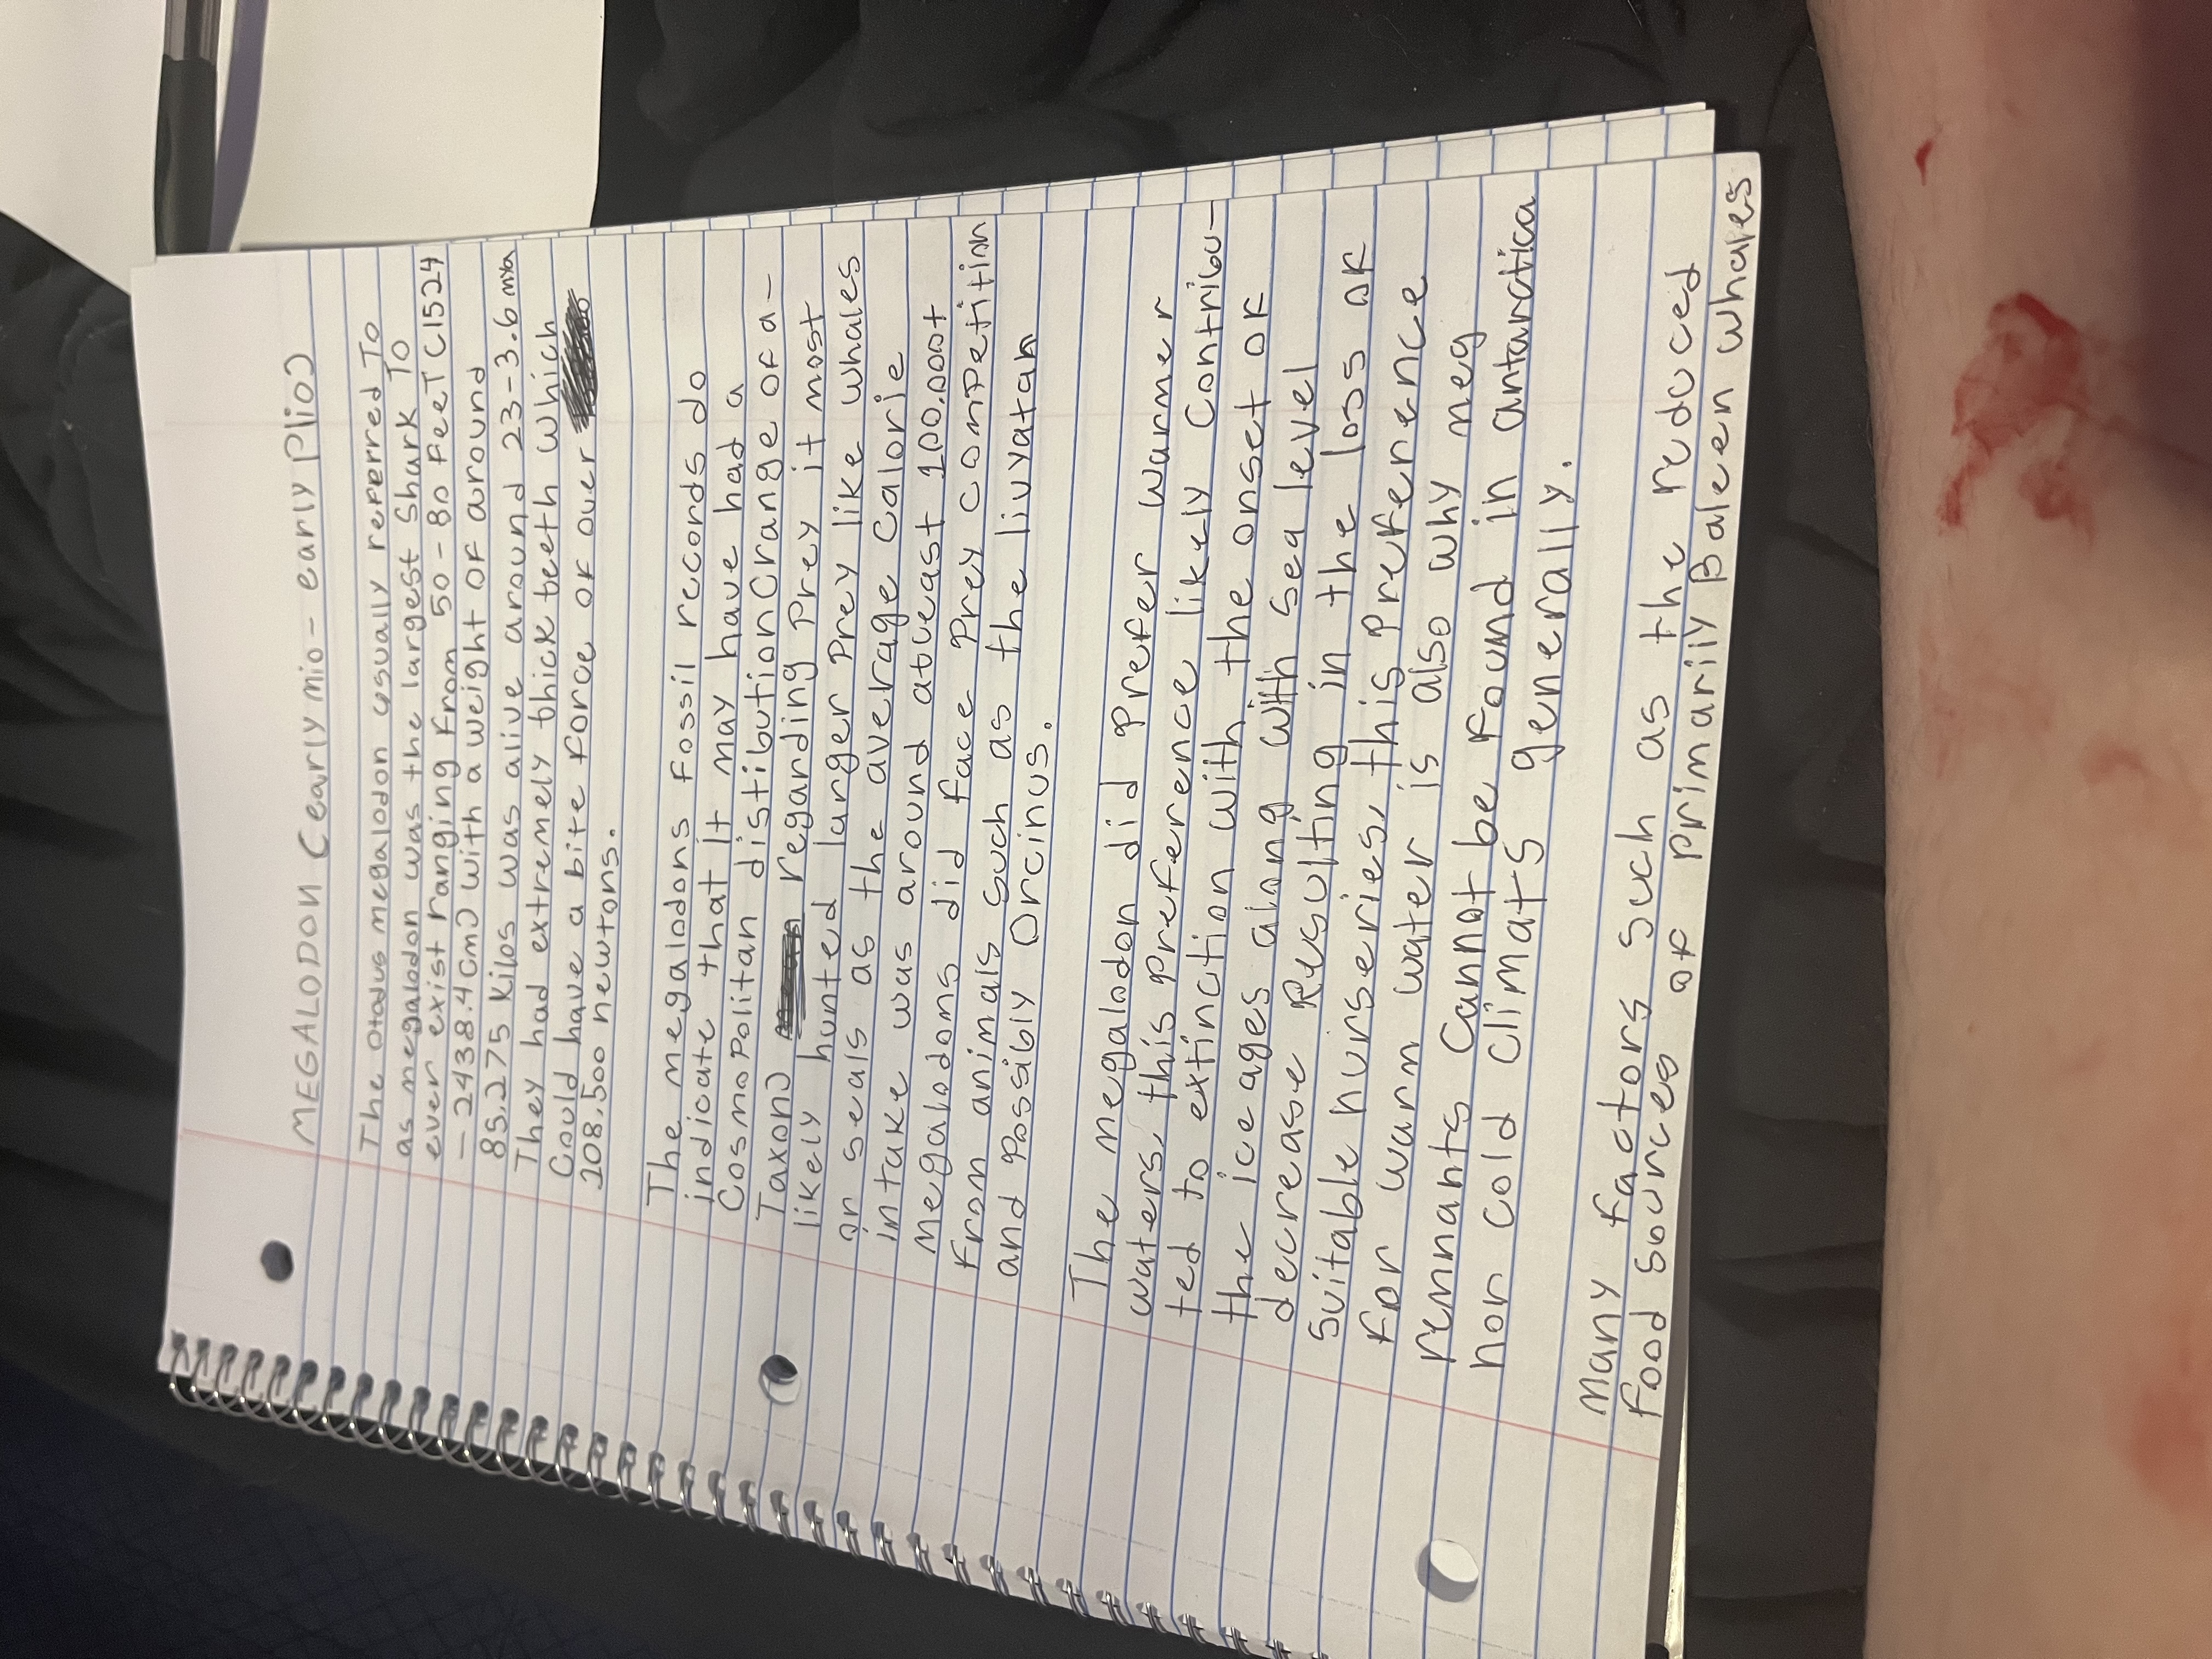 MEGALODON (early mio - early Plio)
The otodus megalodon usually referred To
as megalodon was the largest shark To
ever exist ranging from 50 - 80 feet (1524
- 2438.4cm) with a weight of around
85,275 kilos was alive around 23-3.6 mya
They had extremely thick teeth which
Could have a bite force of over
108,500 newtons.
The megalodons fossil records do
indicate that it may have had a
CosmoPolitan distibution(range of a-
Taxon) regarding Prey it most
likely hunted larger Prey like whales
or seals as the average Calorie
intake was around atleast 100,000+
Megalodons did face Prey competition
from animals such as the livyatan
and Possibly Orcinus.
The megalodon did Prefer warmer
waters, this preference likely Contribu-
ted to extinction with the onset of
the ice ages along with sea level
decrease Resulting in the loss of
Suitable nurseries, this Preference
for warm water is also why meg
remnants Cannot be found in antarctica
nor cold climats generally.
Many factors such as the reduced
food sources of primarily Baleen whales